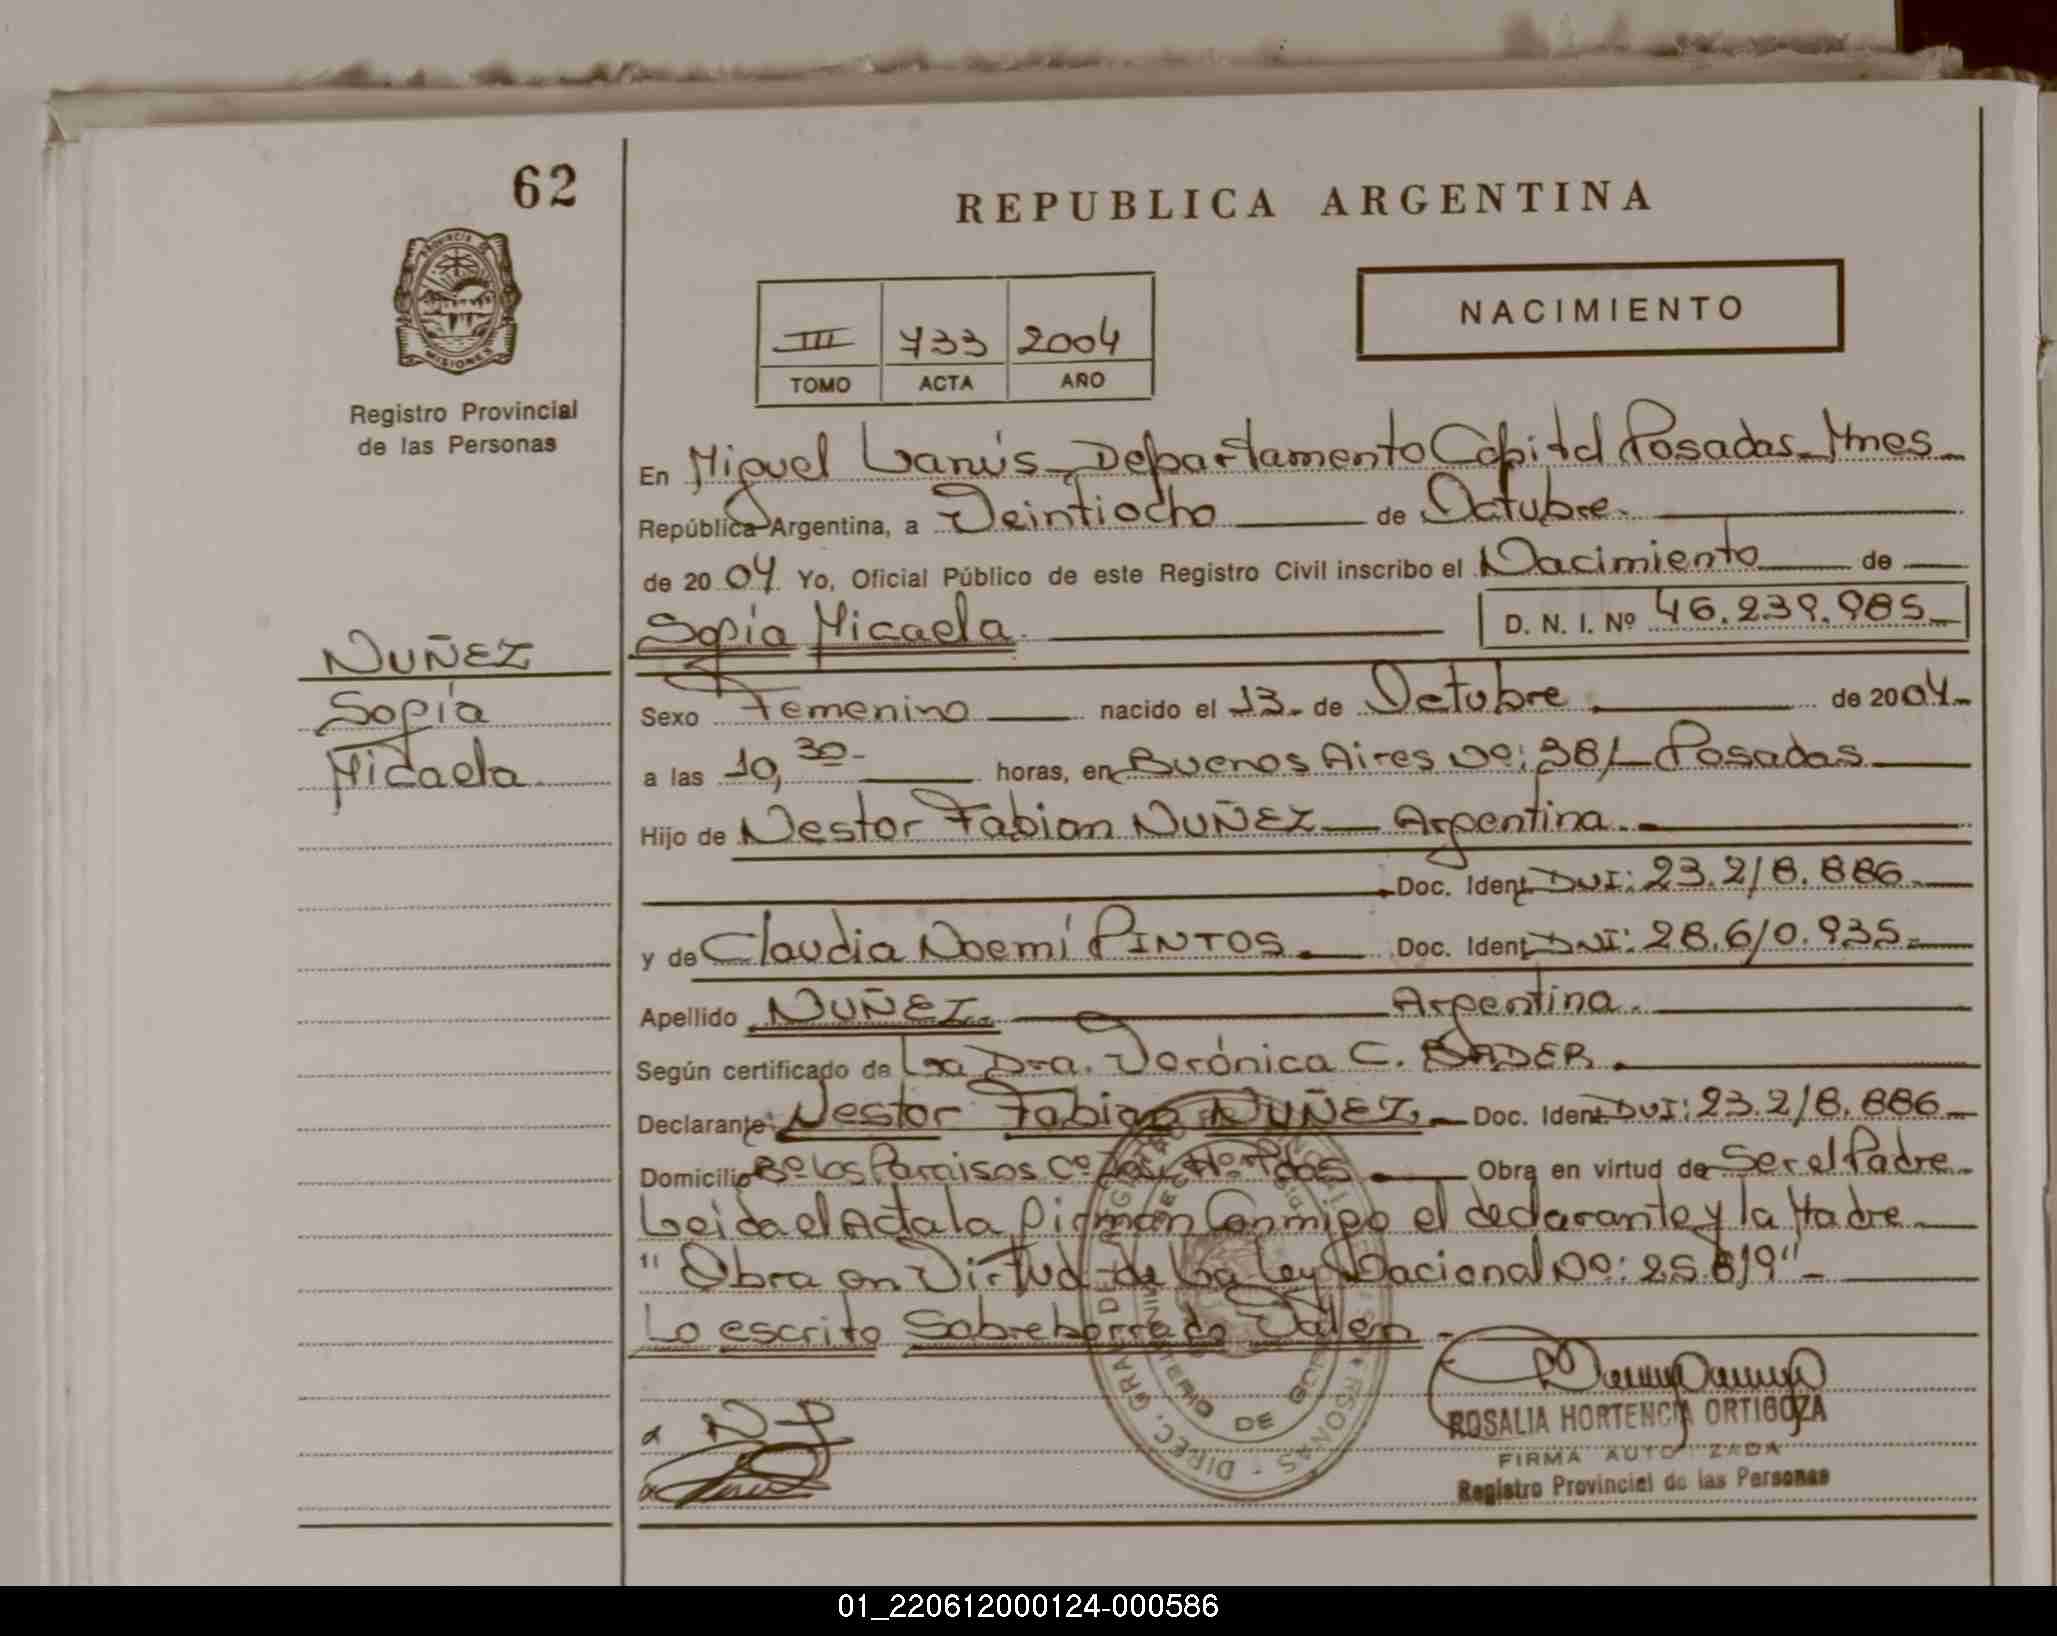 62
REPUBLICA ARGENTINA
PROVINCIA DE
MISIONES
Registro Provincial
de las Personas
NACIMIENTO
III 733 2004
TOMO ACTA AÑO
En Miguel Lanús - Departamento Capital Posadas - Mnes
República Argentina, a Veintiocho de Octubre.
de 20 04 Yo, Oficial Público de este Registro Civil inscribo el Nacimiento de
Sofía Micaela. D. N. I. Nº 46.239.985
NUÑEZ
Sofía
Micaela
Sexo Femenino nacido el 13 de Octubre de 2004
a las 10,30 horas, en Buenos Aires Nº: 381 Posadas
Hijo de Nestor Fabian NUÑEZ Argentina.
Doc. Ident. DNI: 23.218.886
y de Claudia Noemí PINTOS. Doc. Ident. DNI: 28.610.935
Apellido NUÑEZ. Argentina.
Según certificado de La Dra. Verónica C. BADER.
Declarante: Nestor Fabian NUÑEZ. Doc. Ident. DNI: 23.218.886
Domicilio Bº Los Paraisos Cº Pdas. Obra en virtud de Ser el Padre
Leida el Acta la firman Conmigo el declarante y la Madre
"Obra en Virtud de la Ley Nacional Nº: 25.819"
Lo escrito Sobreborrado Valen
ROSALIA HORTENCIA ORTIGOZA
FIRMA AUTORIZADA
Registro Provincial de las Personas
01_220612000124-000586